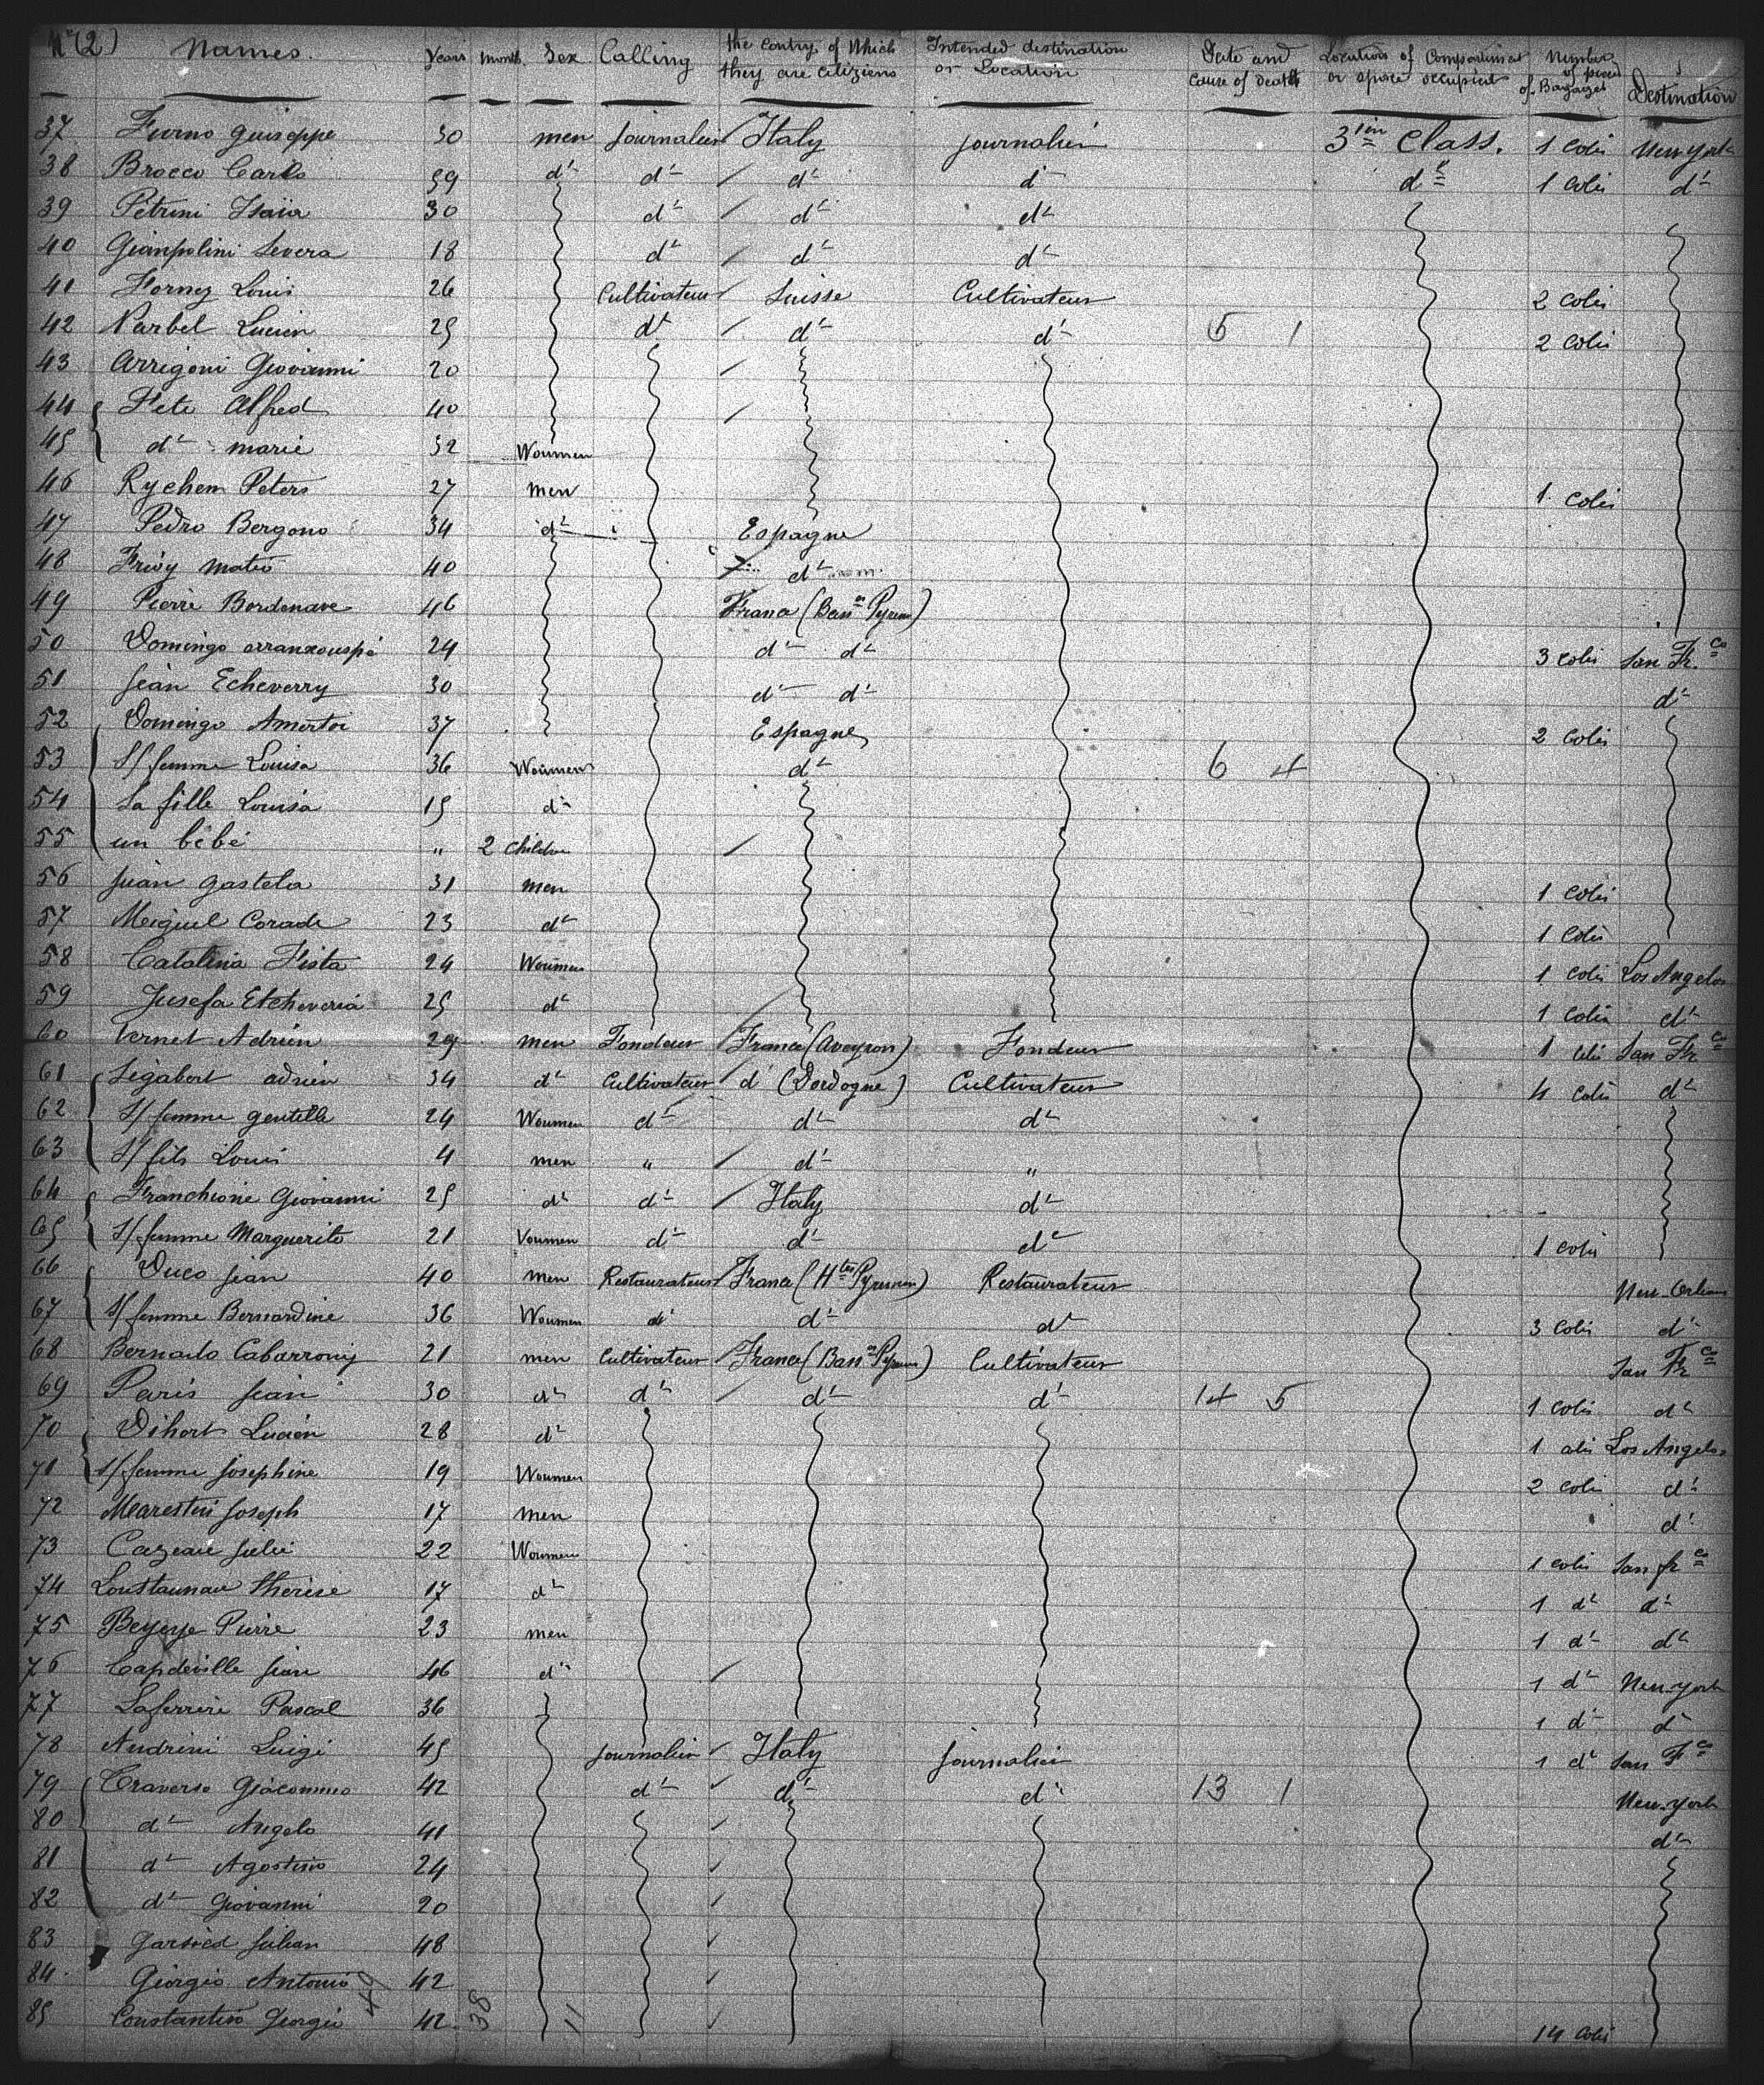 N° (2) Names. Years month Sex Calling the Contry of Which they are citiziens Intended destination or Location Date and cause of death Location of Compartiment or space occupied Number of pieces of Bagages Destination
37 Furno Guiseppe 30 men journalier Italy journalier 3ièm Class. 1 Colis New york
38 Brocco Carlo 59 dº dº dº dº dº 1 Colis dº
39 Petrini Isaïa 30 dº dº dº
40 Gianpolini Severa 18 dº dº dº
41 Forney Louis 26 Cultivateur Suisse Cultivateur 2 Colis
42 Narbel Lucien 25 dº dº dº 5 1 2 Colis
43 Arrigoni Giovanni 20
44 Fete Alfred 40
45 dº marie 32 Woumen
46 Rychem Peters 27 men 1 Colis
47 Pedro Bergono 34 dº Espagne
48 Frivy mateo 40 dº
49 Pierre Bordenave 46 France (Basses Pyrén)
50 Domingo arranxouspé 24 dº dº 3 colis San Frco
51 jean Echeverry 30 dº dº dº
52 Domingo Amertoi 37 Espagne 2 Colis
53 S/ femme Louisa 36 Woumen dº 6 4
54 Sa fille Louisa 15 dº
55 un bébé " 2 Children
56 juan gastela 31 men 1 Colis
57 Meiguel Corade 23 dº 1 Colis
58 Catalina Fista 24 Woumen 1 Colis Los Angelos
59 Jusefa Etcheveria 25 dº 1 Colis dº
60 Vernet Adrien 29 men Fondeur France (Aveyron) Fondeur 1 Colis San Frco
61 Ségabert adrien 34 dº Cultivateur dº (Dordogne) Cultivateur 4 Colis dº
62 S/ femme gentille 24 Woumen dº dº dº
63 S/ fils Louis 4 men " dº "
64 Franchione Giovanni 25 dº dº Italy dº
65 S/ femme Marguerite 21 Voumen dº dº dº 1 colis
66 Duco jean 40 men Restaurateur France (Htes Pyrénées) Restaurateur New-Orleans
67 S/ femme Bernardine 36 Woumen dº dº dº 3 Colis dº
68 Bernardo Cabarrouiy 21 men Cultivateur France (Basses Pyrén) Cultivateur San Frco
69 Paris jean 30 dº dº dº dº 14 5 1 colis dº
70 Dihort Lucien 28 dº 1 colis Los Angelos
71 S/ femme josephine 19 Woumen 2 colis dº
72 Marestin joseph 17 men dº
73 Cazeau julie 22 Woumen 1 colis San frco
74 Loustaunau therèse 17 dº 1 dº dº
75 Beyerye Pierre 23 men 1 dº dº
76 Capdeville jean 46 dº 1 dº New-york
77 Laferrere Pascal 36 1 dº dº
78 Andrini Luigi 45 journalier Italy journalier 1 dº San Fco
79 Traverso Giacommo 42 dº dº dº 13 1 New-york
80 dº Angelo 41 dº
81 dº Agostino 24
82 dº Giovanni 20
83 Garsied julian 48
84 Giorgio Antonio 42
85 Constantin Georgie 42 38 11 14 Colis
49